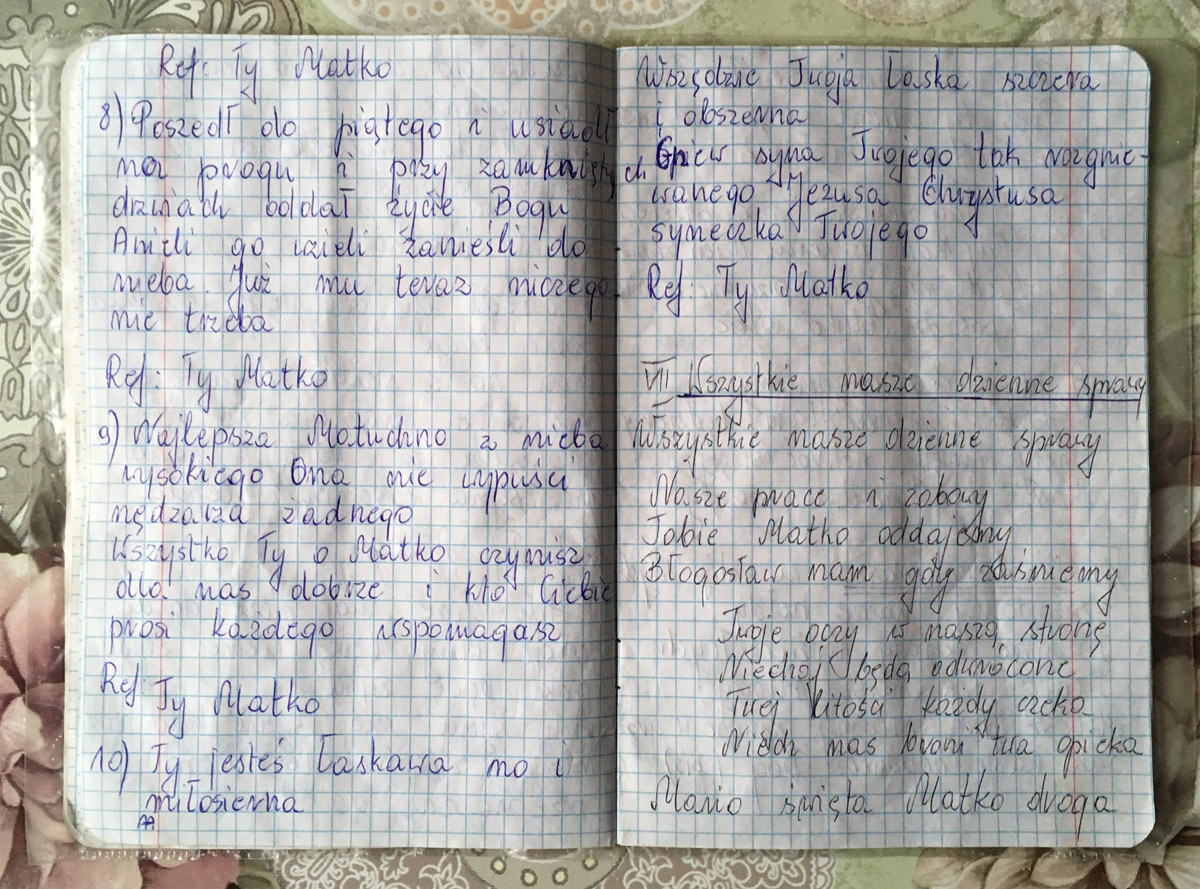 Ref: Ty Matko
8) Poszedł do piątego i usiadł
na progu i przy zamkniętych
drzwiach oddał życie Bogu
Anieli go wzieli zanieśli do
nieba. Już mu teraz niczego
nie trzeba
Ref: Ty Matko
9) Najlepsza Matuchno z nieba
wysokiego Ona nie wypuści
nędzarza żadnego
Wszystko Ty o Matko czynisz
dla nas dobrze i kto Ciebie
prosi każdego wspomagasz
Ref: Ty Matko
10) Ty jesteś Łaskawa no i
miłosierna
Wszędzie Twoja Łaska szczera
i obszerna
Gniew syna Twojego tak rozgnie-
wanego Jezusa Chrystusa
syneczka Twojego
Ref: Ty Matko
VII Wszystkie nasze dzienne sprawy
Wszystkie nasze dzienne sprawy
Nasze prace i zabawy
Tobie Matko oddajemy
Błogosław nam gdy zaśniemy
Twoje oczy w naszą stronę
Niechaj będą odwrócone
Twej litości każdy czeka
Niech nas broni twa opieka
Mario święta Matko droga